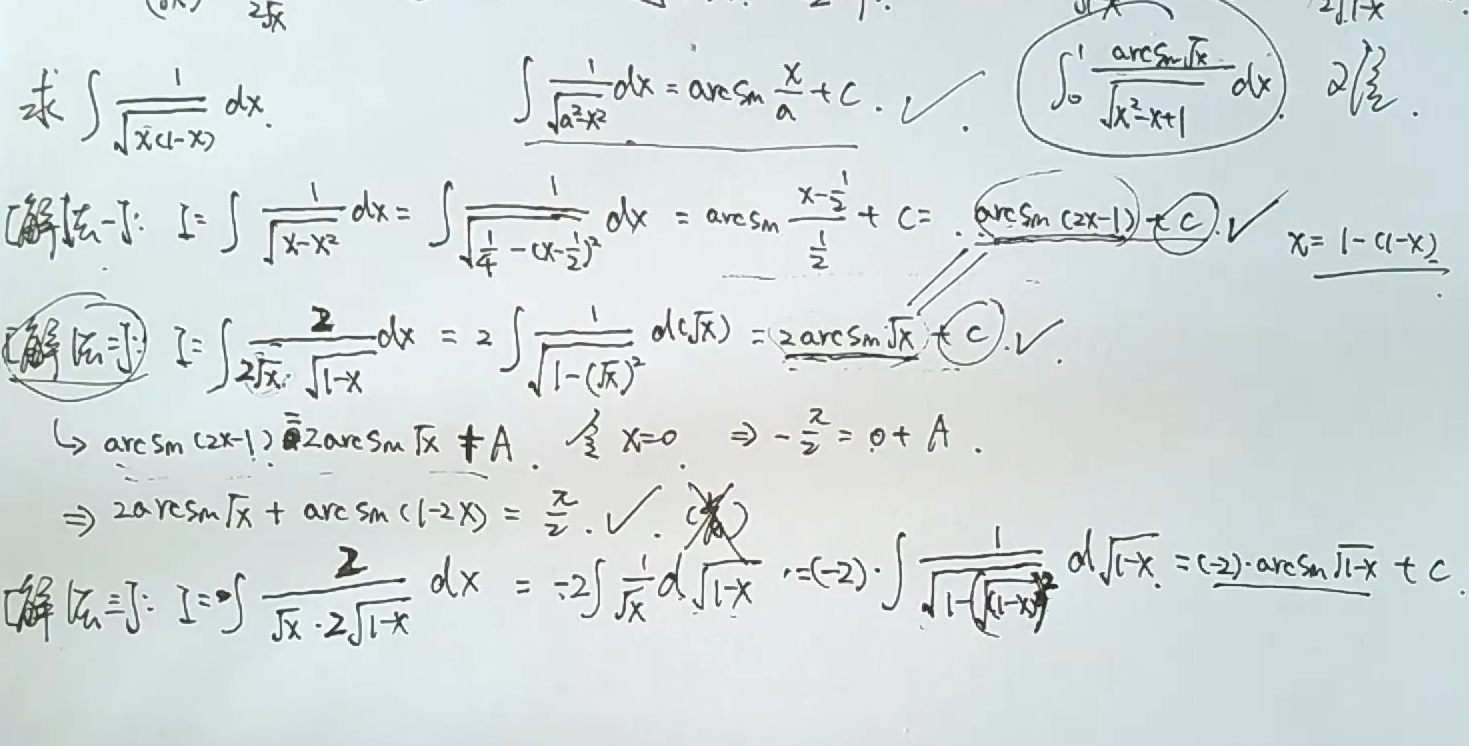 2√x 2√1-x
求 ∫ 1/√(x(1-x)) dx. ∫ 1/√(a²-x²) dx = arcsin x/a + C. ✓. ∫₀¹ arcsin√x/√(x²-x+1) dx
[解法一]: I = ∫ 1/√(x-x²) dx = ∫ 1/√(1/4-(x-1/2)²) dx = arcsin (x-1/2)/(1/2) + C = arcsin(2x-1) + C. ✓ x = 1-(1-x).
[解法二]: I = ∫ 2/(2√x·√(1-x)) dx = 2∫ 1/√(1-(√x)²) d(√x) = 2arcsin√x + C. ✓.
↳ arcsin(2x-1) = 2arcsin√x + A. 令 x=0. ⇒ -π/2 = 0 + A.
⇒ 2arcsin√x + arcsin(1-2x) = π/2. ✓.
[解法三]: I = ∫ 2/(√x·2√(1-x)) dx = -2∫ 1/√x d√(1-x) = (-2)·∫ 1/√(1-(√(1-x))²) d√(1-x) = (-2)·arcsin√(1-x) + C.